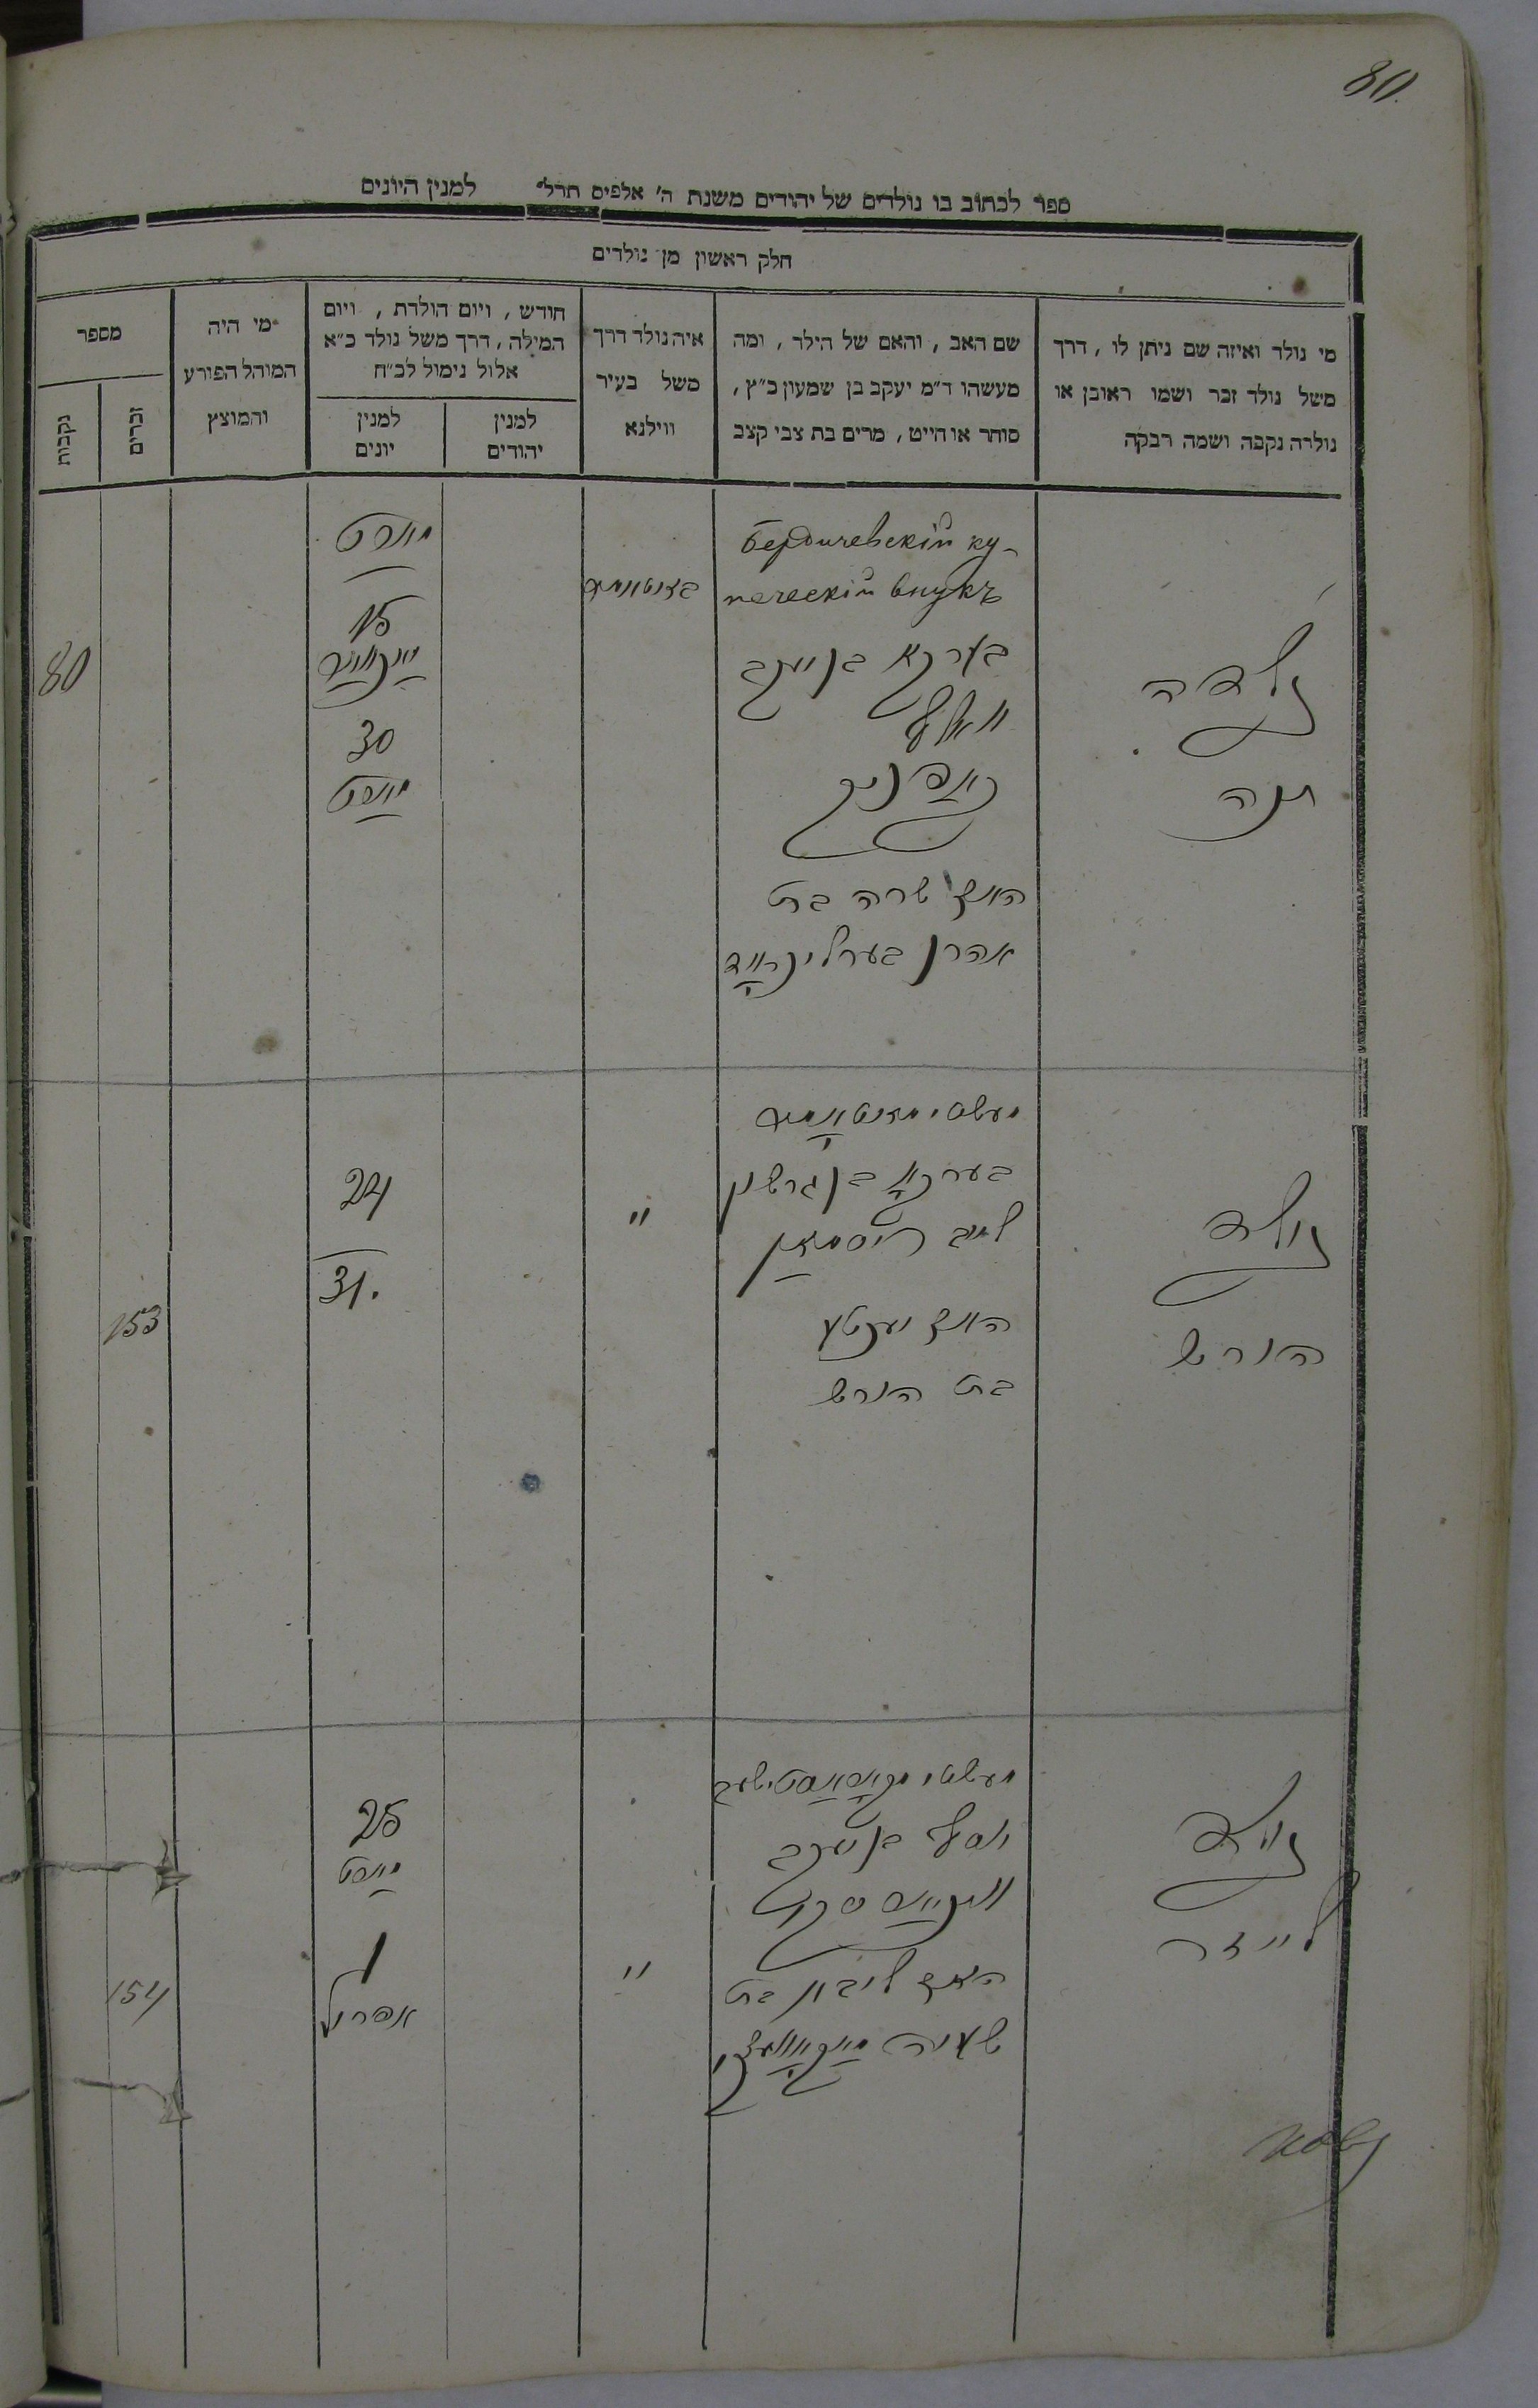 80.
ספר לכתוב בו נולדים של יהודים משנת ה' אלפים תרל" למנין היונים
חלק ראשון מן נולדים
מי נולד ואיזה שם ניתן לו, דרך
משל נולד זכר ושמו ראובן או
נולדה נקבה ושמה רבקה
שם האב, והאם של הילד, ומה
מעשהו ד"מ יעקב בן שמעון כ"ץ,
סוחר או חייט, מרים בת צבי קצב
איה נולד דרך
משל בעיר
ווילנא
חודש, ויום הולדת, ויום
המילה, דרך משל נולד כ"א
אלול נימול לכ"ח
למנין
יהודים
למנין
יונים
מי היה
המוהל הפורע
והמוצץ
מספר
זכרים
נקבות
נולדה
חנה
Бердичевскій ку-
печескій внукъ
בערקא בן יעקב
האם שרה בת
אהרן
בזיטאמיר
מארט
15
30
מארט
80
נולד
הירש
מעשטש מזיטאמיר
בערקא בן גרשון
לייב
האם יענטע
בת הירש
"
24
31.
153
נולד
לייזר
יוסף בן יעקב
האם ליבא בת
"
25
מארט
1
אפריל
154